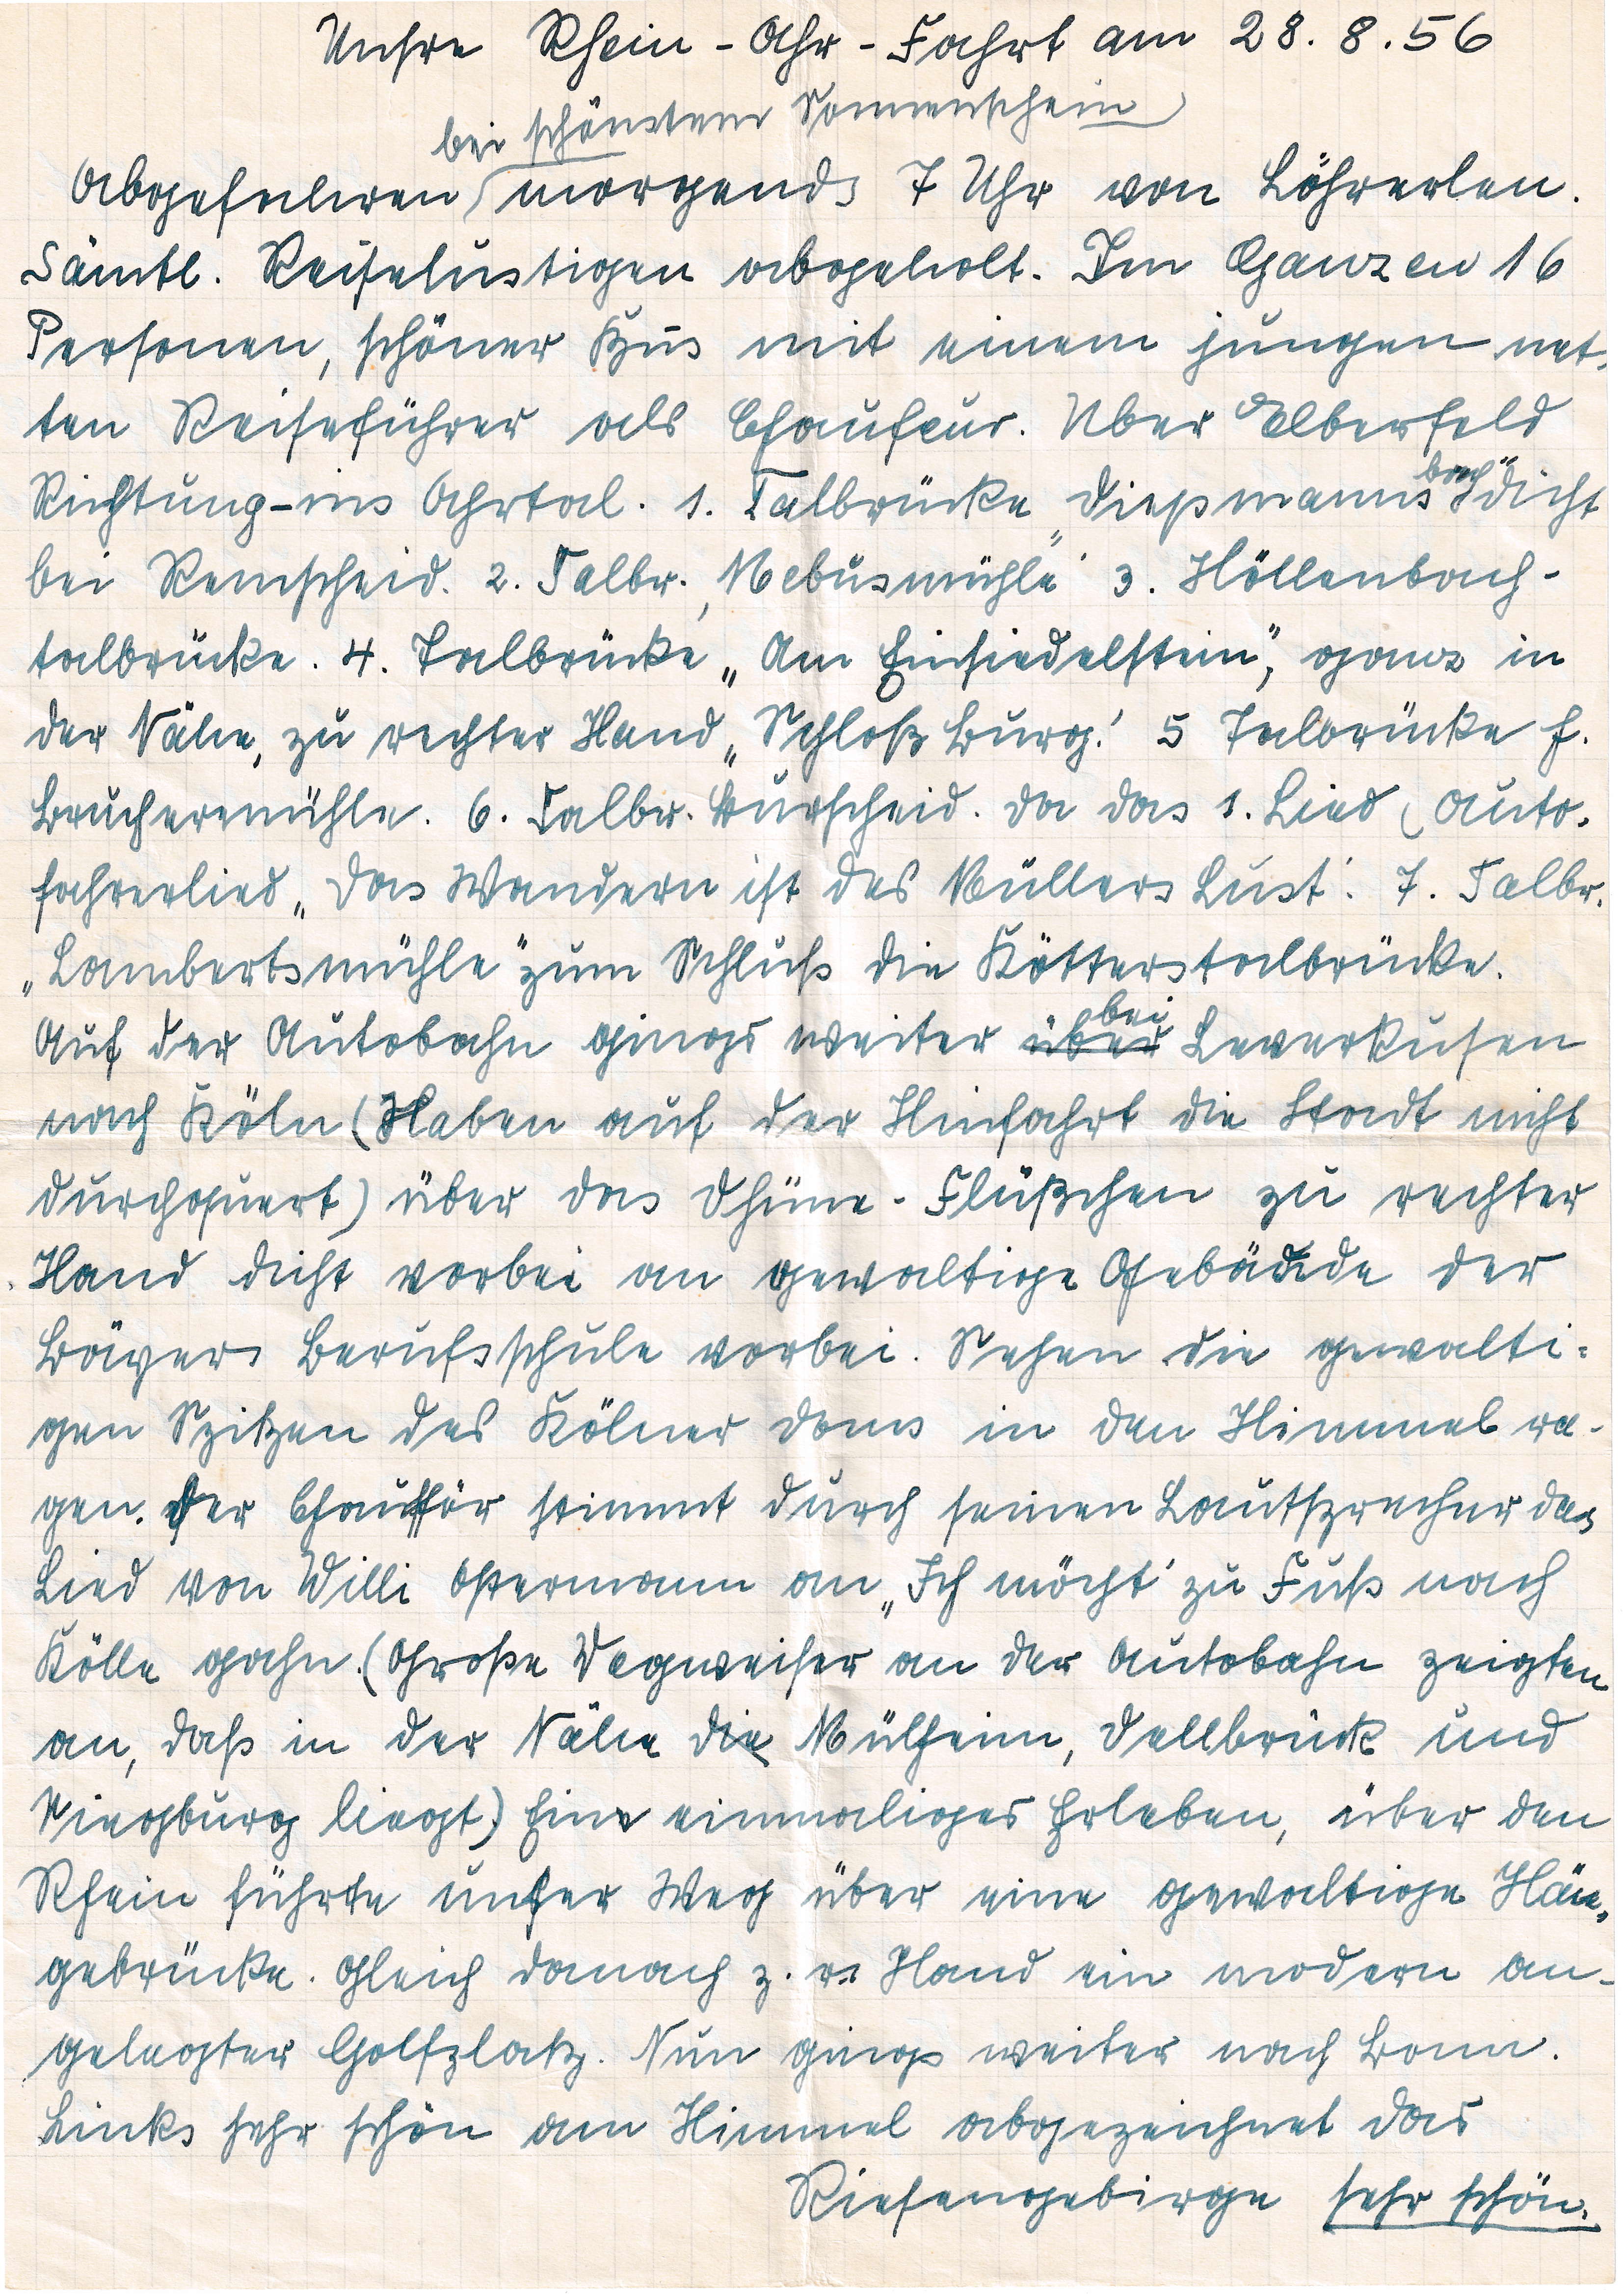 Unsre Rhein-Ahr-Fahrt am 28. 8. 56
bei schönstem Sonnenschein)
Abgefahren (morgends 7 Uhr von Löhrerlen.
Sämtl. Reiselustigen abgeholt. Im Ganzen 16
Personen, schöner Bus mit einem jungen net-
ten Reiseführer als Chaufeur. Über Elberfeld
Richtung-ins Ahrtal. 1. Talbrücke „Diepmannsbach" dicht
bei Remscheid. 2. Talbr. „Nebusmühle" 3. Höllenbach-
talbrücke. 4. Talbrücke „Am Einsiedelstein", ganz in
der Nähe, zu rechter Hand „Schloß Burg." 5 Talbrücke f.
Bruchermühle. 6. Talbr. Burscheid. Da das 1. Lied (Auto-
fahrerlied „Das Wandern ist des Müllers Lust". 7. Talbr.
„Lambertsmühle" zum Schluß die Kötterstalbrücke.
Auf der Autobahn gings weiter über bei Leverkusen
nach Köln (Haben auf der Hinfahrt die Stadt nicht
durchquert) über das Dhüne-Flüßchen zu rechter
Hand dicht vorbei an gewaltige Gebäude der
Bäyers Berufsschule vorbei. Sehen die gewalti-
gen Spitzen des Kölner Doms in den Himmel ra-
gen. Der Chaufför stimmt durch seinen Lautsprecher das
Lied von Willi Ostermann an „Ich möcht' zu Fuß nach
Kölle gahn. (Große Wegweiser an der Autobahn zeigten
an, daß in der Nähe die Mülheim, Dellbrück und
Siegburg liegt.) Ein einmaliges Erleben, über den
Rhein führte unser Weg über eine gewaltige Hän-
gebrücke. Gleich danach z. r. Hand ein modern an-
gelegter Golfplatz. Nun gings weiter nach Bonn.
Links sehr schön am Himmel abgezeichnet das
Riesengebirge sehr schön.